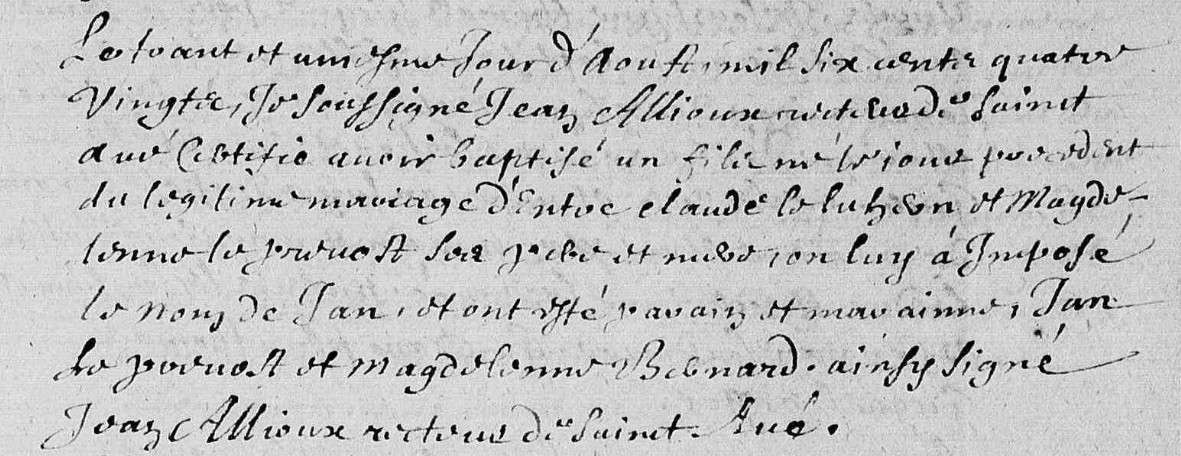 Le trant et uniesme Jour d'Aoust, mil six cents quatre
Vingts, Je soussigné Jean Allioux recteur de sainct
Avé Certifie avoir baptisé un fils né le jour precedent
du legitime mariage d'Entre claude le luhern et Magde-
lenne le prevost ses pere et mere, on luy á Imposé
le nom de Jan, et ont esté parain et maraine, Jan
Le prevost et Magdelenne Bernard. ainsy signé
Jean Allioux recteur de sainct. Avé.